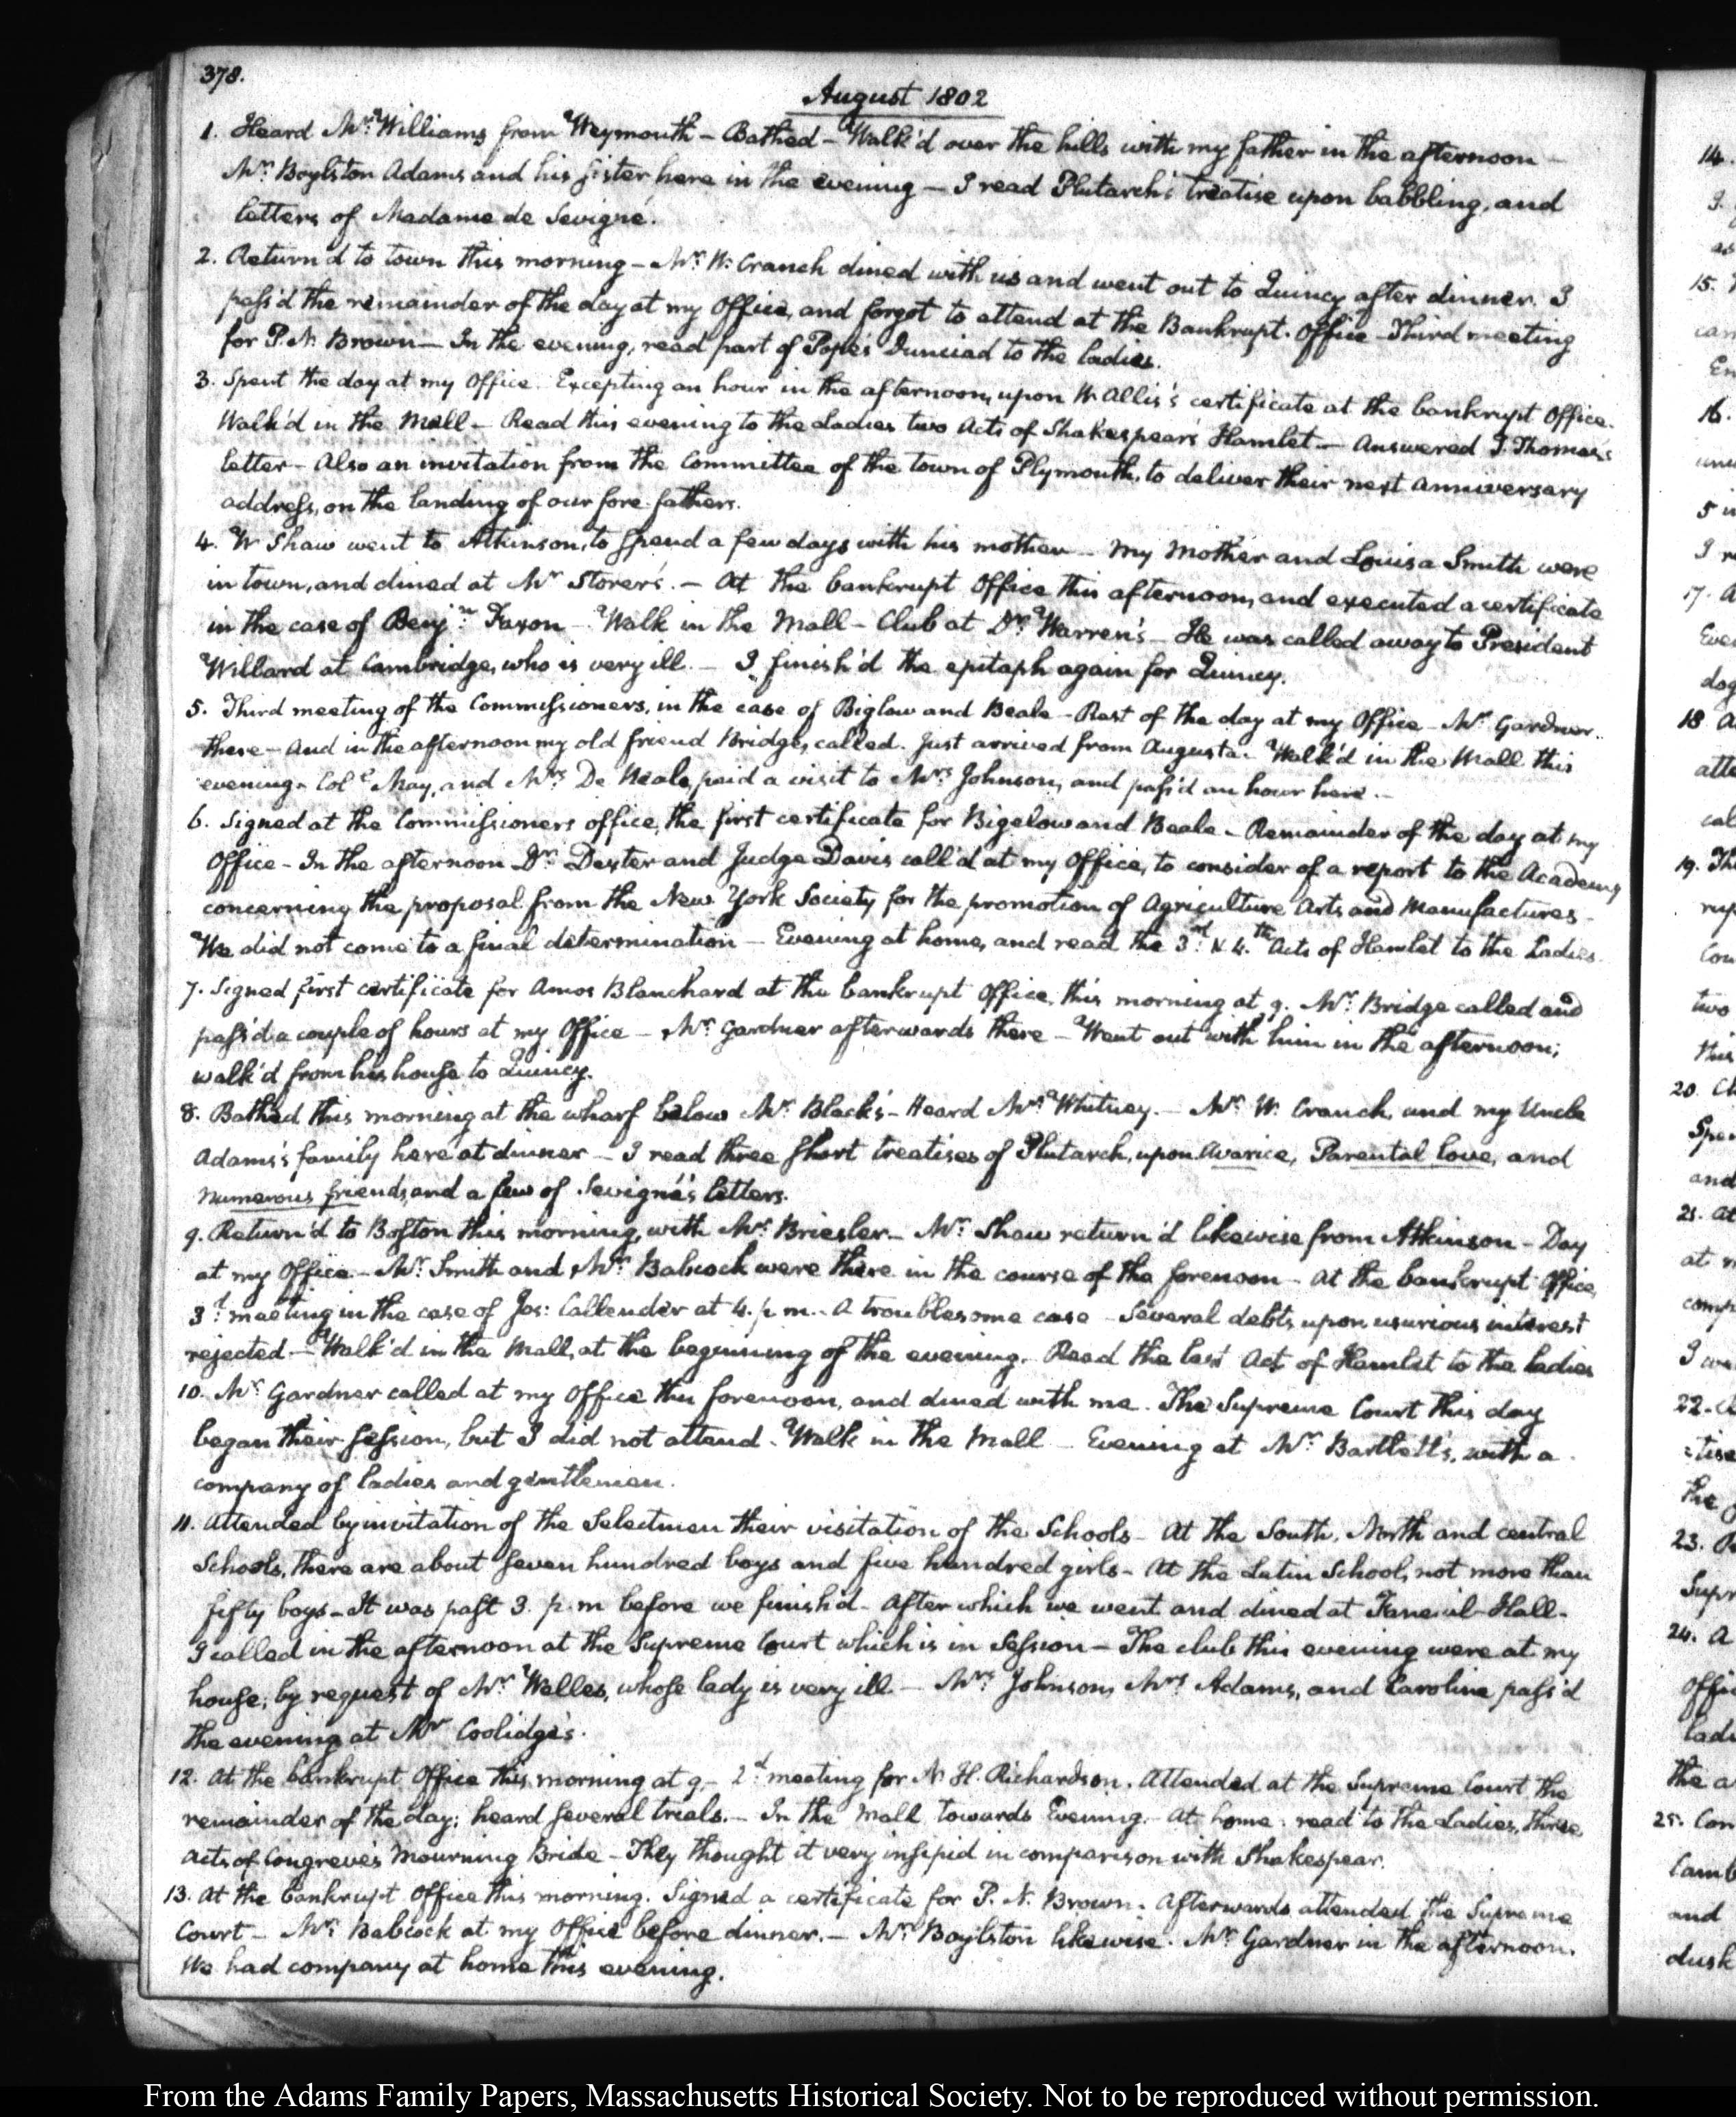 378.
August 1802
1. Heard Mr. Williams from Weymouth - Bathed - Walk'd over the hills with my father in the afternoon -
Mr. Boylston Adams and his sister here in the evening - I read Plutarch's treatise upon babbling, and
letters of Madame de Sevigné.
2. Return'd to town this morning - Mr. W. Cranch dined with us and went out to Quincy after dinner. I
pass'd the remainder of the day at my Office, and forgot to attend at the Bankrupt. Office - Third meeting
for P. N. Brown - In the evening, read part of Pope's Dunciad to the ladies.
3. Spent the day at my Office. Excepting an hour in the afternoon, upon W. Allis's certificate at the bankrupt Office.
Walk'd in the Mall - Read this evening to the Ladies two Acts of Shakespear's Hamlet. - Answered J. Thomas's
letter - Also an invitation from the Committee of the town of Plymouth, to deliver their next anniversary
address, on the landing of our fore-fathers.
4. W Shaw went to Atkinson, to spend a few days with his mother - My Mother and Louisa Smith were
in town, and dined at Mr Storer's. - At the bankrupt Office this afternoon, and executed a certificate
in the case of Benjn. Faxon - Walk in the Mall - Club at Dr. Warren's - He was called away to President
Willard at Cambridge, who is very ill. - I finish'd the epitaph again for Quincy.
5. Third meeting of the Commissioners, in the case of Biglow and Beale - Rest of the day at my Office - Mr. Gardner
there - And in the afternoon my old friend Bridge, called. Just arrived from Augusta. Walk'd in the Mall this
evening - Coll. May, and Mrs. De Neale, paid a visit to Mrs. Johnson, and pass'd an hour here. -
6. Signed at the Commissioners office, the first certificate for Bigelow and Beale - Remainder of the day at my
Office - In the afternoon Dr. Dexter and Judge Davis call'd at my Office, to consider of a report to the Academy
concerning the proposal from the New York Society for the promotion of Agriculture Arts and Manufactures -
We did not come to a final determination - Evening at home, and read the 3rd. & 4th. Acts of Hamlet to the Ladies.
7. Signed first certificate for Amos Blanchard at the bankrupt Office, this morning at 9. Mr. Bridge called and
pass'd a couple of hours at my Office - Mr. Gardner afterwards there - Went out with him in the afternoon;
walk'd from his house to Quincy.
8. Bathed this morning at the wharf below Mr. Black's - Heard Mr. Whitney. - Mr. W. Cranch, and my Uncle
Adams's family here at dinner - I read three short treatises of Plutarch, upon Avarice, Parental love, and
numerous friends, and a few of Sevigné's letters.
9. Return'd to Boston this morning, with Mr. Briesler - Mr. Shaw return'd likewise from Atkinson - Day
at my Office - Mr. Smith and Mr. Babcock were there in the course of the forenoon - At the bankrupt Office,
3d. meeting in the case of Jos: Callender at 4. p.m. - A troublesome case - Several debts upon usurious interest
rejected - Walk'd in the Mall, at the beginning of the evening. Read the last Act of Hamlet to the ladies
10. Mr. Gardner called at my Office this forenoon, and dined with me. The Supreme Court this day
began their session, but I did not attend. Walk in the Mall - Evening at Mr. Bartlett's, with a
company of ladies and gentlemen.
11. Attended by invitation of the Selectmen their visitation of the Schools - At the South, North and central
Schools, there are about seven hundred boys and five hundred girls - At the Latin School, not more than
fifty boys - It was past 3. p.m before we finish'd - After which we went and dined at Faneuil-Hall -
I called in the afternoon at the Supreme Court which is in Session - The club this evening were at my
house; by request of Mr. Welles, whose lady is very ill - Mrs Johnson, Mrs Adams, and Caroline pass'd
the evening at Mr Coolidge's.
12. At the bankrupt Office this morning at 9 - 2d. meeting for N. H. Richardson. Attended at the Supreme Court the
remainder of the day; heard several trials. - In the Mall towards Evening. At home: read to the Ladies, three
acts of Congreve's Mourning Bride - They thought it very insipid in comparison with Shakespear.
13. At the bankrupt Office this morning. Signed a certificate for P. N. Brown. Afterwards attended the Supreme
Court - Mr. Babcock at my Office before dinner. - Mr. Boylston likewise. Mr. Gardner in the afternoon.
We had company at home this evening.
From the Adams Family Papers, Massachusetts Historical Society. Not to be reproduced without permission.